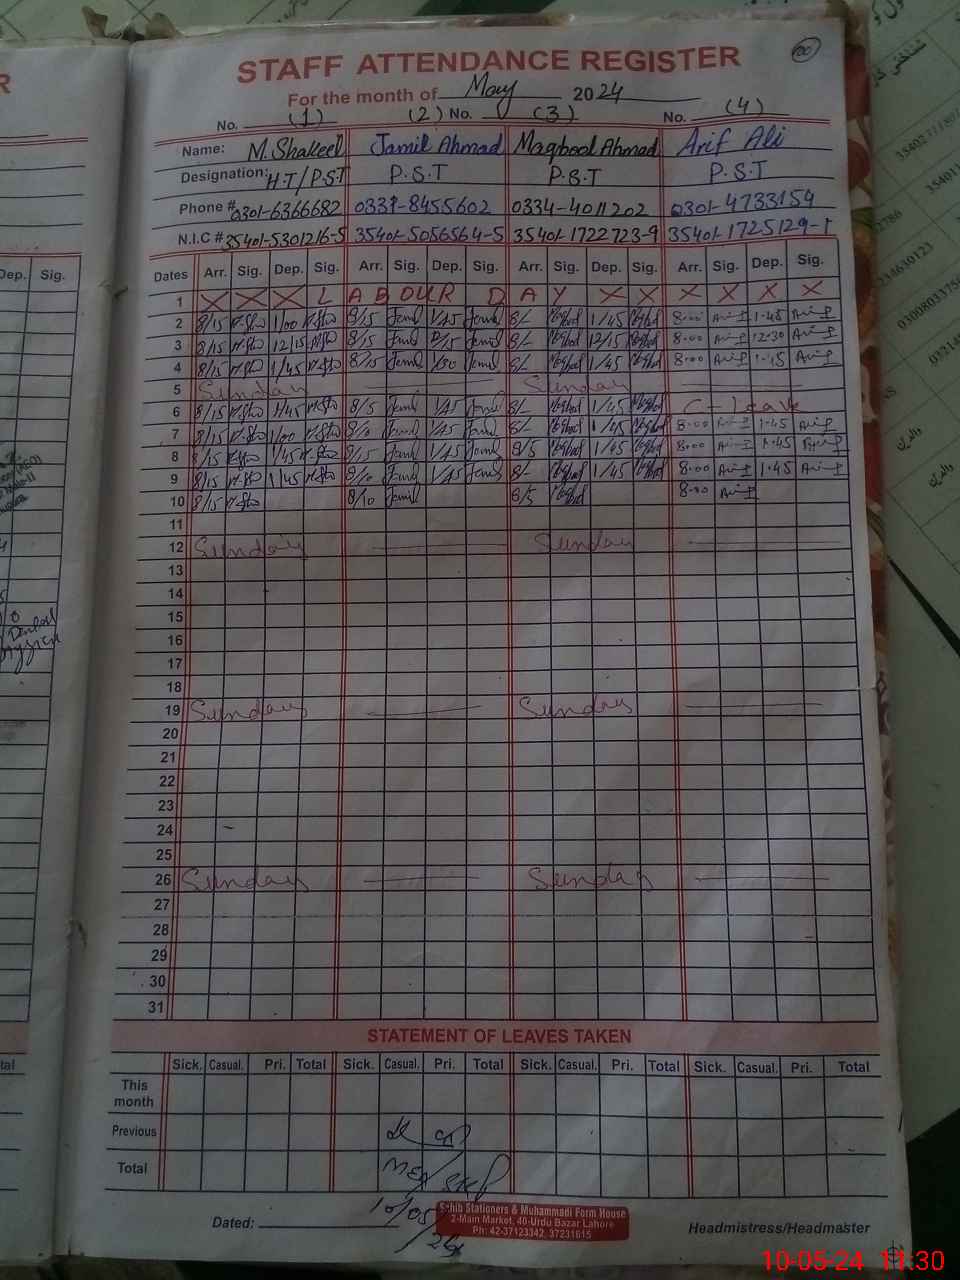 STAFF ATTENDANCE REGISTER
For the month of May 2024
No. (1) (2) No. (3) No. (4)
Name: M. Shakeel Jamil Ahmad Maqbool Ahmad Arif Ali
Designation: H.T/P.S.T P.S.T P.S.T P.S.T
Phone # 0301-6366682 0331-8455602 0334-4011202 0301-4733159
N.I.C # 35401-5301216-5 35401-5056564-5 35401-1722723-9 35401-1725129-1
Dates Arr. Sig. Dep. Sig. Arr. Sig. Dep. Sig. Arr. Sig. Dep. Sig. Arr. Sig. Dep. Sig.
1 X X X L A B OU R D A Y X X X X X X
2 8/15 1/00 8/15 Jamil 1/45 Jamil 8/- 1/45 8-00 Arif 1-45 Arif
3 8/15 12/15 8/15 Jamil 12/15 Jamil 8/- 12/15 8-00 Arif 12-30 Arif
4 8/15 1/45 8/15 Jamil 1/30 Jamil 8/- 1/45 8-00 Arif 1-15 Arif
5 Sunday Sunday
6 8/15 1/45 8/5 Jamil 1/45 Jamil 8/- 1/45 C-Leave
7 8/15 1/00 8/10 Jamil 1/45 Jamil 8/- 1/45 8-00 Arif 1-45 Arif
8 8/15 1/45 8/15 Jamil 1/45 Jamil 8/5 1/45 8-00 Arif 1-45 Arif
9 8/15 1/45 8/10 Jamil 1/45 Jamil 8/- 1/45 8-00 Arif 1-45 Arif
10 8/15 8/10 Jamil 8/5 8-00 Arif
11
12 Sunday Sunday
13
14
15
16
17
18
19 Sunday Sunday
20
21
22
23
24
25
26 Sunday Sunday
27
28
29
30
31
STATEMENT OF LEAVES TAKEN
Sick. Casual. Pri. Total Sick. Casual. Pri. Total Sick. Casual. Pri. Total Sick. Casual. Pri. Total
This month
Previous
Total
MEA/SKP
10/05/24
Dated:
Sahib Stationers & Muhammadi Form House
2-Main Market, 40-Urdu Bazar Lahore
Ph: 42-37123342, 37231615
Headmistress/Headmaster
10-05-24 11:30